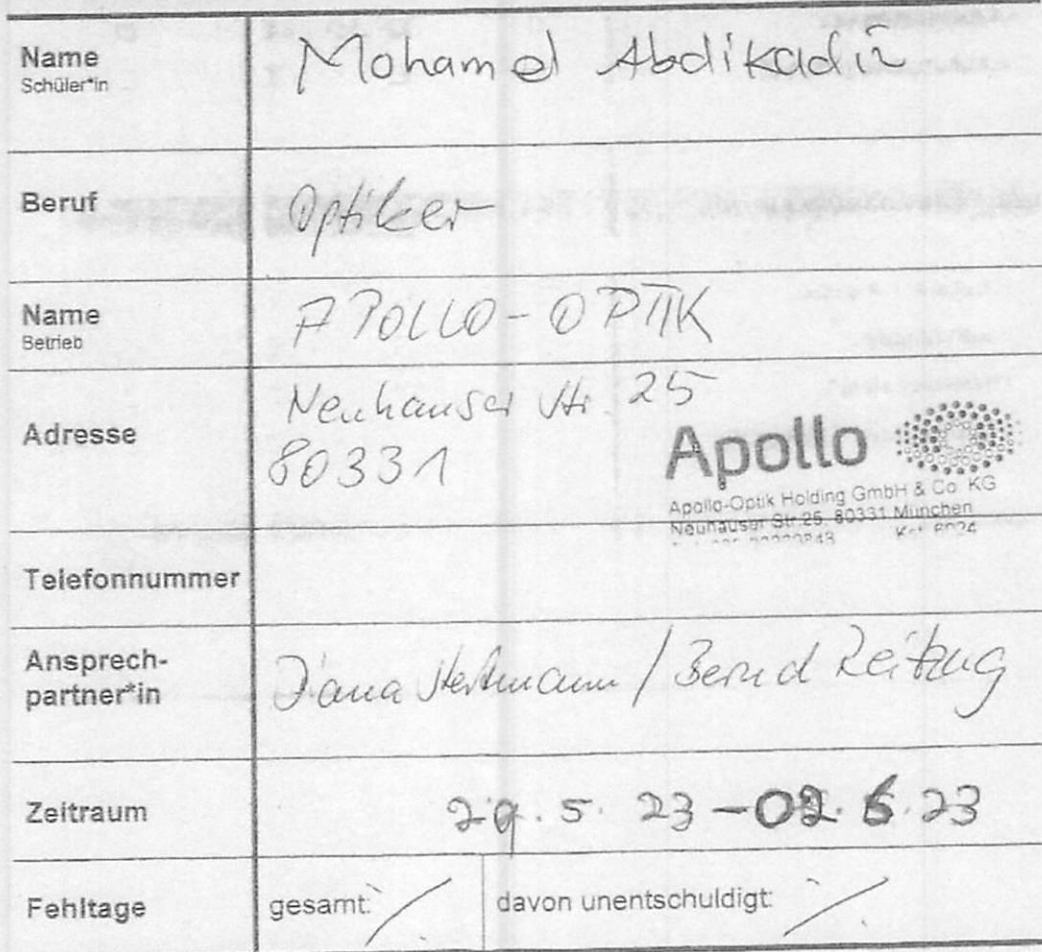 Name Mohamed Abdikadir
Schüler*in
Beruf Optiker
Name APOLLO-OPTIK
Betrieb
Adresse Neuhauser Str. 25
80331
Apollo
Apollo-Optik Holding GmbH & Co. KG
Neuhauser Str. 25, 80331 München
Telefonnummer
Ansprech-
partner*in Diana / Bernd Reitzug
Zeitraum 29.5.23-02.6.23
Fehltage gesamt: / davon unentschuldigt: /